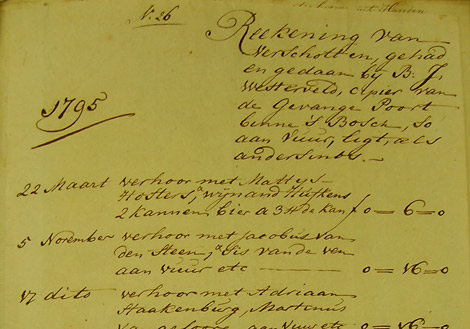 N. 26
Reekening van
verschotten, gehad
en gedaan bij B. J.
Westerveld, Cipier van
de Gevange Poort
binne 's Bosch, so
aan vuur, ligt, als
andersints.
1795
22 Maart verhoor met Mattys
Hosters, wynand Hufkens
2 kannen bier a 3 st de kan f 0 = 6 = 0
5 November verhoor met Jacobus van
den Steen, Gis van de ven
aan vuur etc 0 = 16 = 0
17 dito verhoor met Adriaan
Haakenburg, Martinus